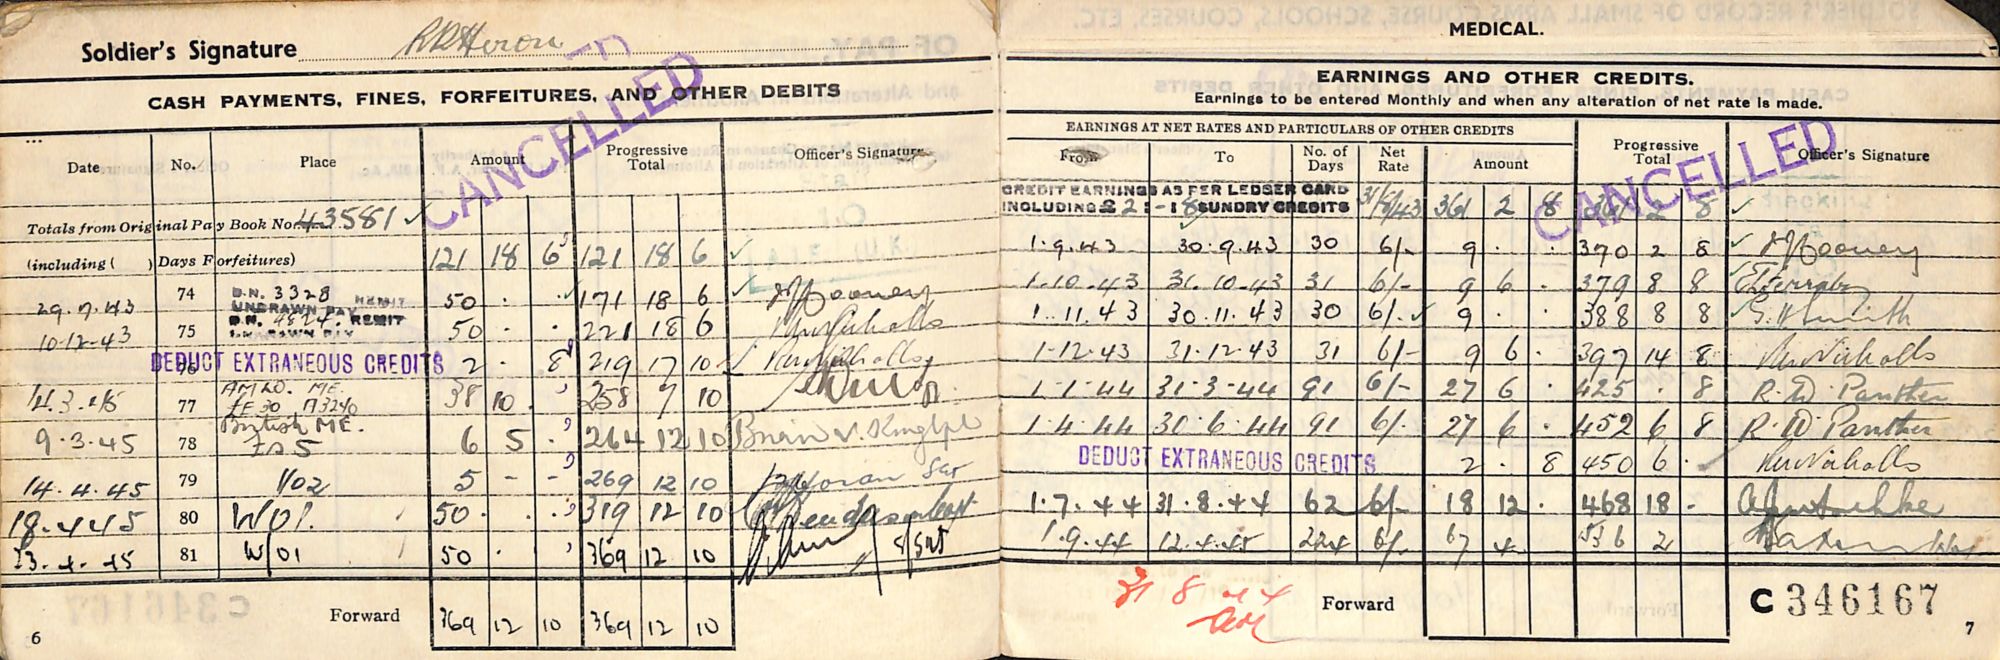 Soldier's Signature R R Heron
CANCELLED
CASH PAYMENTS, FINES, FORFEITURES, AND OTHER DEBITS
Date No. Place Amount Progressive Total Officer's Signature
Totals from Original Pay Book No. 43581
(including ( ) Days Forfeitures) 121 18 6 121 18 6
29.7.43 74 D.N. 3328 REMIT UNDRAWN PAY 50 . . 171 18 6
10.12.43 75 D.N. 4824. REMIT UNDRAWN PAY 50 . . 221 18 6 Nicholls
76 DEDUCT EXTRANEOUS CREDITS 2 . 8 219 17 10 Nicholls
14.3.45 77 ME. 38 10 . 258 7 10
9.3.45 78 British ME. 6 5 . 264 12 10 Brian V.
14.4.45 79 1/02 5 - - 269 12 10 Horan
18.4.45 80 W01. 50 . . 319 12 10
23.4.45 81 W/01 50 . 369 12 10
Forward 369 12 10 369 12 10
6
C346167
MEDICAL.
EARNINGS AND OTHER CREDITS.
Earnings to be entered Monthly and when any alteration of net rate is made.
EARNINGS AT NET RATES AND PARTICULARS OF OTHER CREDITS
From To No. of Days Net Rate Amount Progressive Total Officer's Signature
CANCELLED
CREDIT EARNINGS AS PER LEDGER CARD
INCLUDING £21-18 SUNDRY CREDITS 31/8/43 361 2 8 361 2 8
1.9.43 30.9.43 30 6/- 9 . . 370 2 8
1.10.43 31.10.43 31 6/- 9 6 . 379 8 8
1.11.43 30.11.43 30 6/- 9 . 388 8 8 Smith
1.12.43 31.12.43 31 6/- 9 6 . 397 14 8 Nicholls
1.1.44 31.3.44 91 6/- 27 6 . 425 . 8 R. W. Panther
1.4.44 30.6.44 91 6/- 27 6 . 452 6 8 R. W. Panther
DEDUCT EXTRANEOUS CREDITS 2 . 8 450 6 . Nicholls
1.7.44 31.8.44 62 6/- 18 12 . 468 18 -
1.9.44 12.4.45 224 6/- 67 4 . 536 2
31 8 44
Forward
C346167
7